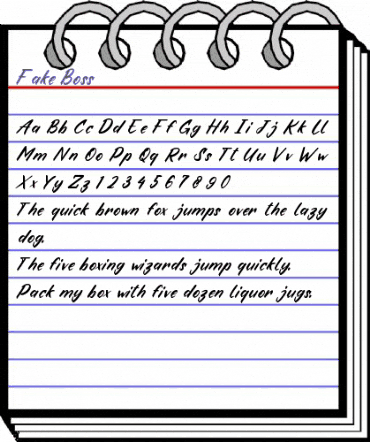 Fake Boss
Aa Bb Cc Dd Ee Ff Gg Hh Ii Jj Kk Ll
Mm Nn Oo Pp Qq Rr Ss Tt Uu Vv Ww
Xx Yy Zz 1 2 3 4 5 6 7 8 9 0
The quick brown fox jumps over the lazy
dog.
The five boxing wizards jump quickly.
Pack my box with five dozen liquor jugs.